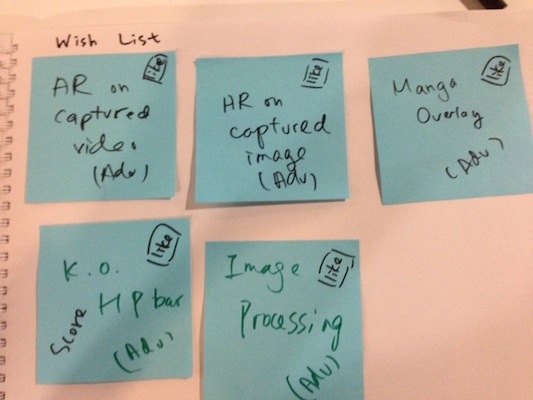 Wish List
like
AR on
captured
video
(Adv)
like
AR on
captured
image
(Adv)
like
Manga
Overlay
(Adv)
like
K.O.
HP bar
Score
(Adv)
like
Image
Processing
(Adv)